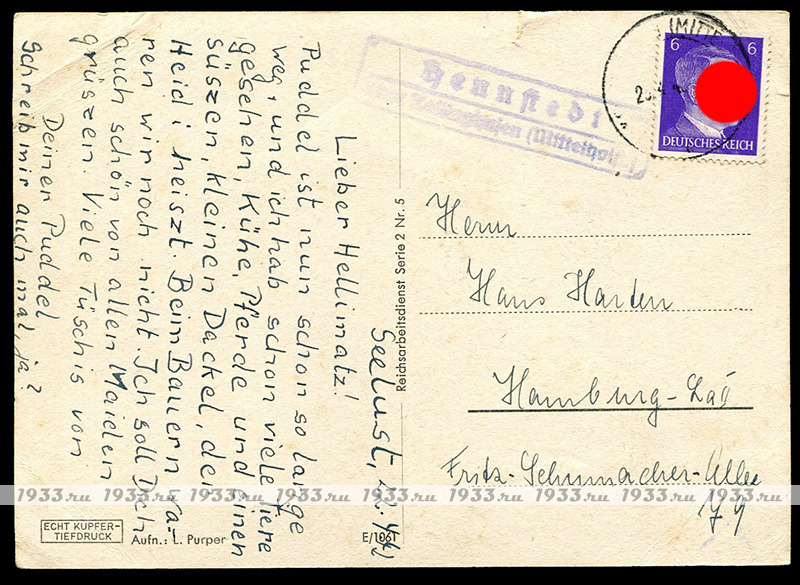 Seelust,
Lieber Hellimatz!
Puddel ist nun schon so lange
weg, und ich hab schon viele Tiere
gesehen, Kühe, Pferde und einen
süszen, kleinen Dackel, der
Heidi heiszt. Beim Bauern wa-
ren wir noch nicht. Ich soll Dich
auch schön von allen Maiden
grüszen. Viele Tüschis von
Deiner Puddel
Schreib mir auch mal, ja?
ECHT KUPFER-
TIEFDRUCK
Aufn.: L. Purper
E/1061
Reichsarbeitsdienst Serie 2 Nr. 5
Hennstedt
(Mittelholst.)
(MITTE
6 6
DEUTSCHES REICH
Herrn
Hans Harden
Hamburg-
Fritz-Schumacher-Allee
79
1933.ru 1933.ru 1933.ru 1933.ru 1933.ru 1933.ru 1933.ru 1933.ru 1933.ru